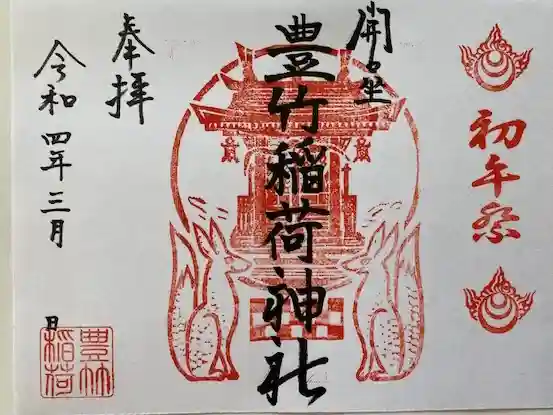 初午祭
開口坐
豊竹稲荷神社
奉拝
令和四年三月
日
豊竹
稲荷